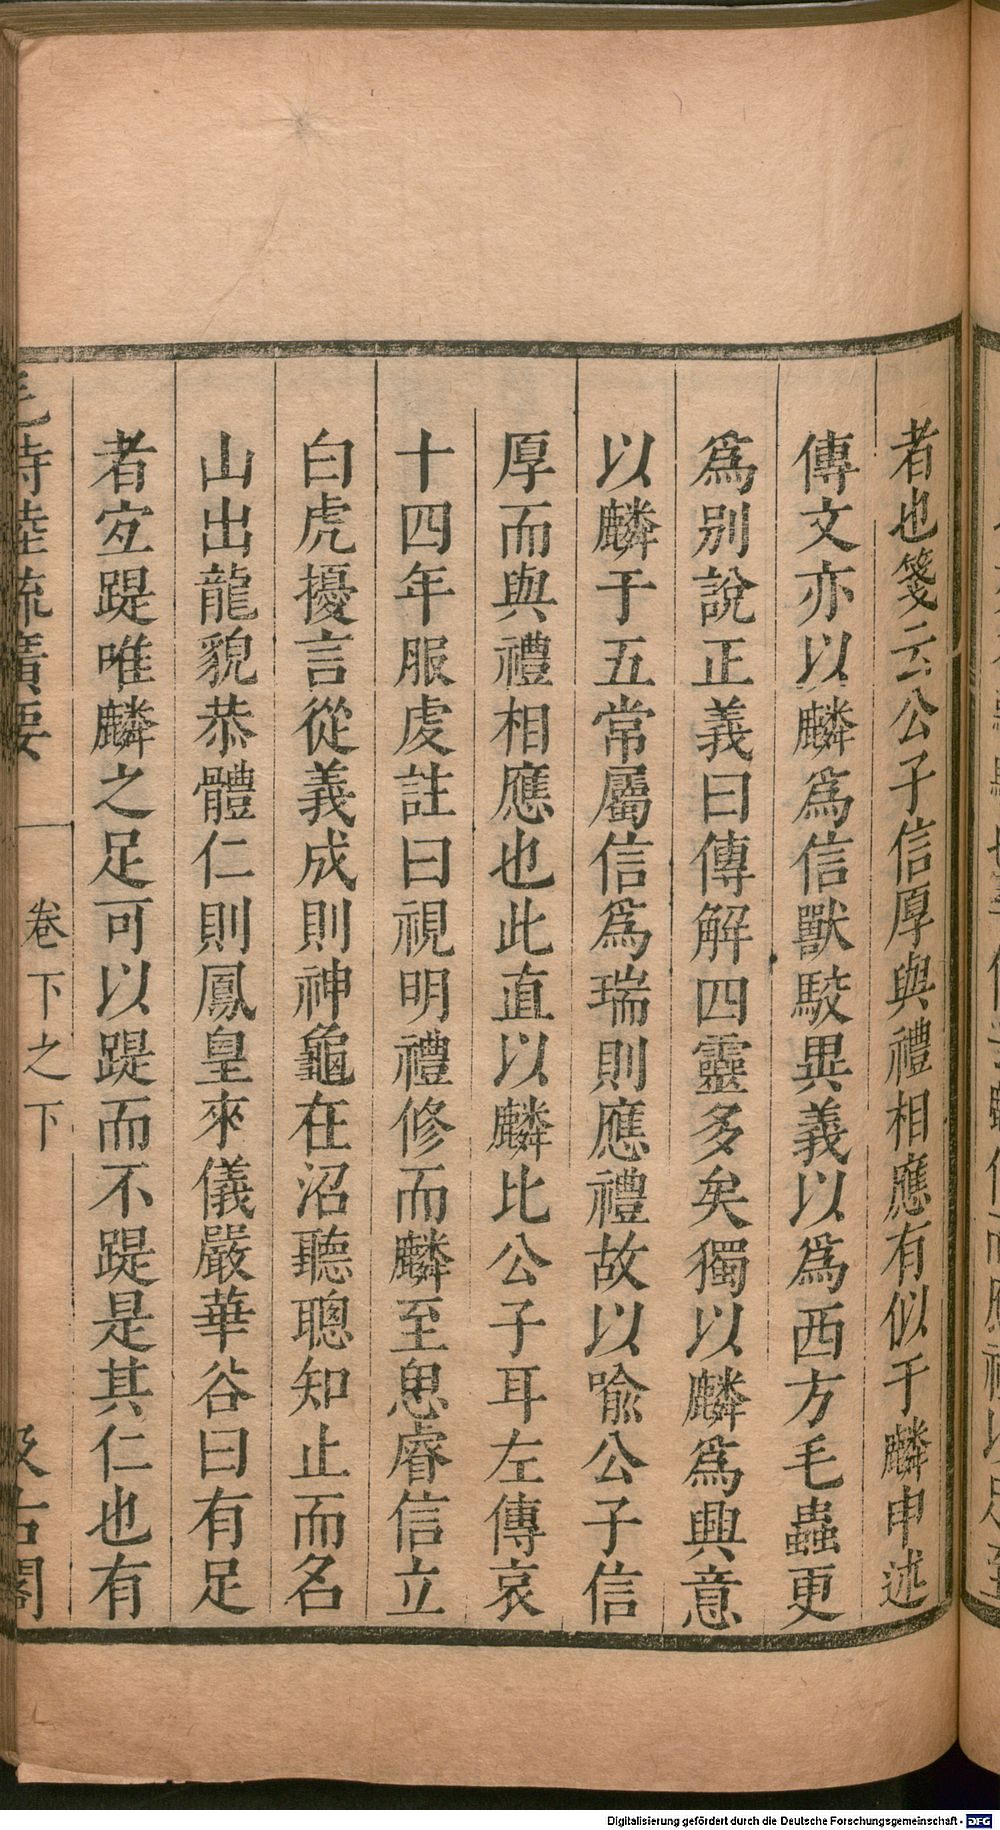 者也箋云公子信厚與禮相應有似于麟申述
傳文亦以麟爲信獸駮異義以爲西方毛蟲更
爲別說正義曰傳解四靈多矣獨以麟爲興意
以麟于五常屬信爲瑞則應禮故以喩公子信
厚而與禮相應也此直以麟比公子耳左傳哀
十四年服虔註曰視明禮修而麟至思睿信立
白虎擾言從義成則神龜在沼聽聰知止而名
山出龍貌恭體仁則鳳皇來儀嚴華谷曰有足
者宐踶唯麟之足可以踶而不踶是其仁也有
毛詩陸疏廣要 卷下之下 汲古閣
Digitalisierung gefördert durch die Deutsche Forschungsgemeinschaft - DFG